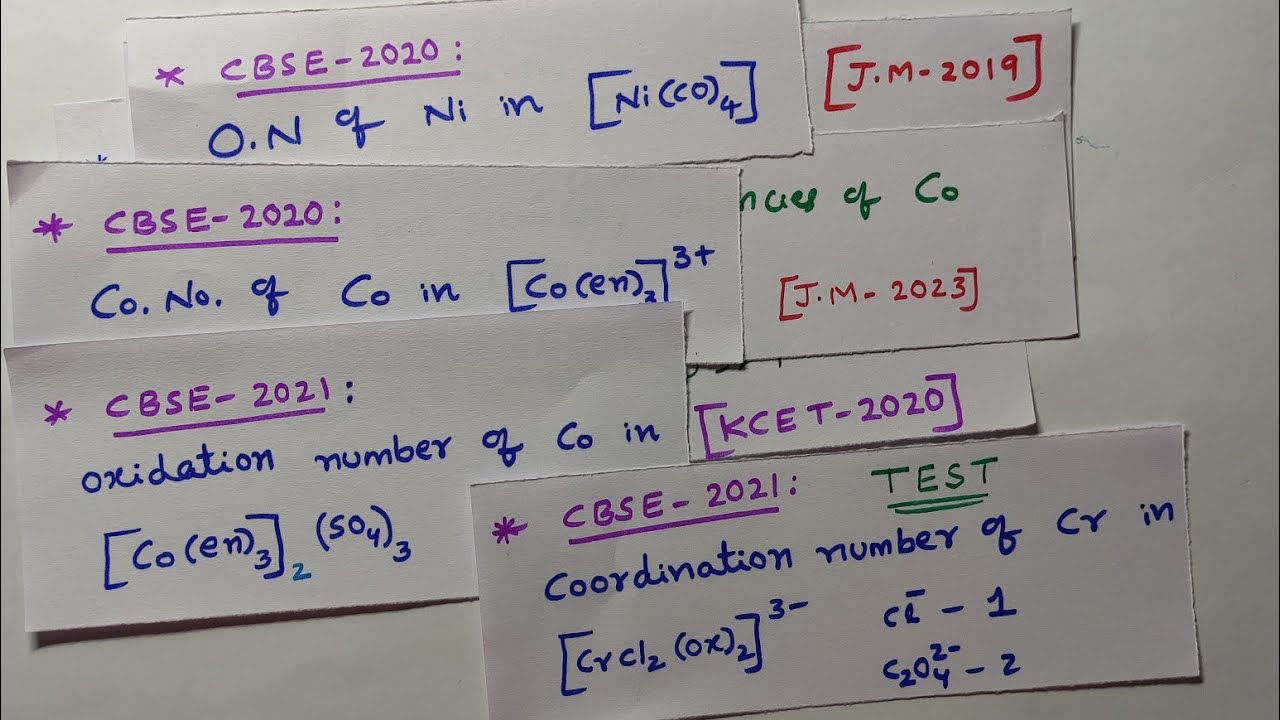 * CBSE-2020:
O.N of Ni in [Ni(CO)4]
[J.M-2019]
* CBSE-2020:
Co. No. of Co in [Co(en)3]3+
of Co
[J.M-2023]
* CBSE-2021:
oxidation number of Co in
[Co(en)3]2 (SO4)3
[KCET-2020]
* CBSE-2021: TEST
Coordination number of Cr in
[CrCl2(ox)2]3- Cl- - 1
C2O42- - 2